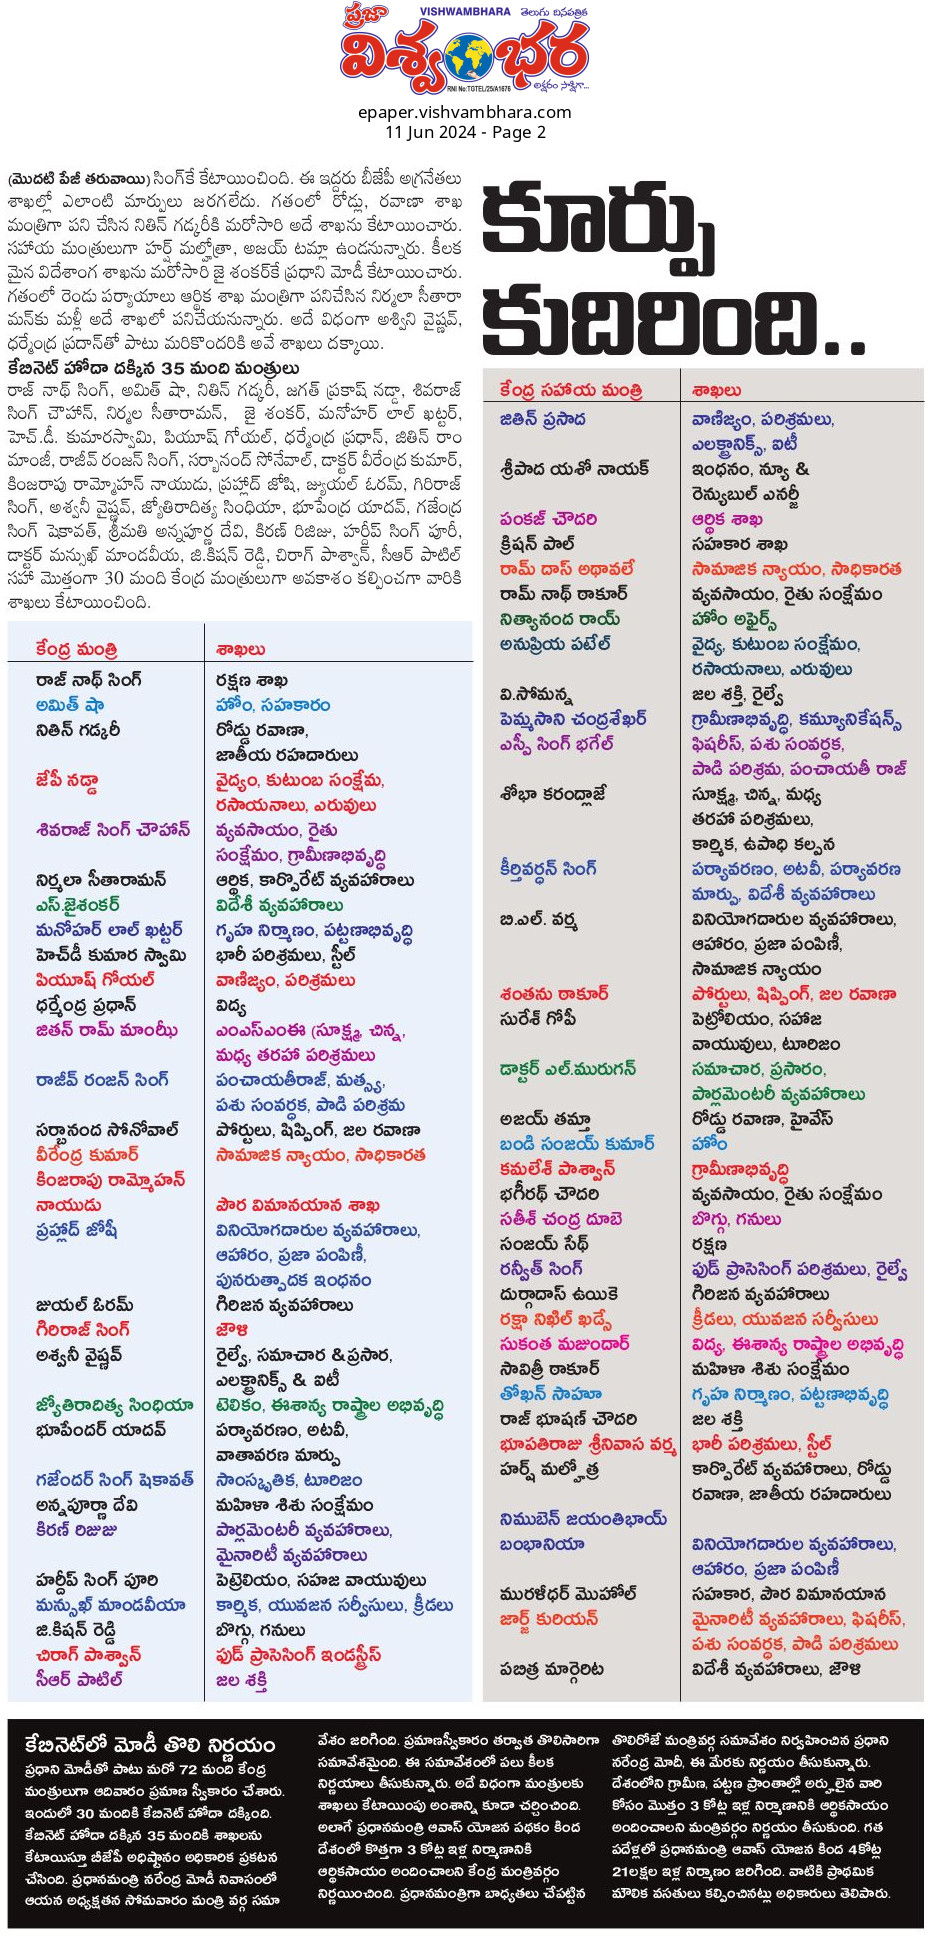 ప్రజా
VISHWAMBHARA తెలుగు దినపత్రిక
విశ్వంభర
RNI No:TGTEL/25/A1676
అక్షరం సాక్షిగా...
epaper.vishvambhara.com
11 Jun 2024 - Page 2
కూర్పు
కుదిరింది..
(మొదటి పేజీ తరువాయి) సింగ్‌కే కేటాయించింది. ఈ ఇద్దరు బీజేపీ అగ్రనేతలు
శాఖల్లో ఎలాంటి మార్పులు జరగలేదు. గతంలో రోడ్లు, రవాణా శాఖ
మంత్రిగా పని చేసిన నితిన్ గడ్కరీకి మరోసారి అదే శాఖను కేటాయించారు.
సహాయ మంత్రులుగా హర్ష్ మల్హోత్రా, అజయ్ టమ్టా ఉండనున్నారు. కీలక
మైన విదేశాంగ శాఖను మరోసారి జై శంకర్‌కే ప్రధాని మోడీ కేటాయించారు.
గతంలో రెండు పర్యాయాలు ఆర్థిక శాఖ మంత్రిగా పనిచేసిన నిర్మలా సీతారా
మన్‌కు మళ్లీ అదే శాఖలో పనిచేయనున్నారు. అదే విధంగా అశ్విని వైష్ణవ్,
ధర్మేంద్ర ప్రదాన్‌తో పాటు మరికొందరికి అవే శాఖలు దక్కాయి.
కేబినెట్ హోదా దక్కిన 35 మంది మంత్రులు
రాజ్ నాథ్ సింగ్, అమిత్ షా, నితిన్ గడ్కరీ, జగత్ ప్రకాష్ నడ్డా, శివరాజ్
సింగ్ చౌహాన్, నిర్మల సీతారామన్, జై శంకర్, మనోహర్ లాల్ ఖట్టర్,
హెచ్.డీ. కుమారస్వామి, పియూష్ గోయల్, ధర్మేంద్ర ప్రధాన్, జితిన్ రాం
మాంజీ, రాజీవ్ రంజన్ సింగ్, సర్బానంద్ సోనేవాల్, డాక్టర్ వీరేంద్ర కుమార్,
కింజరాపు రామ్మోహన్ నాయుడు, ప్రహ్లాద్ జోషి, జ్యుయల్ ఓరమ్, గిరిరాజ్
సింగ్, అశ్వనీ వైష్ణవ్, జ్యోతిరాదిత్య సింధియా, భూపేంద్ర యాదవ్, గజేంద్ర
సింగ్ షెకావత్, శ్రీమతి అన్నపూర్ణ దేవి, కిరణ్ రిజిజు, హర్దీప్ సింగ్ పూరీ,
డాక్టర్ మన్సుఖ్ మాండవీయ, జి.కిషన్ రెడ్డి, చిరాగ్ పాశ్వాన్, సీఆర్ పాటిల్
సహా మొత్తంగా 30 మంది కేంద్ర మంత్రులుగా అవకాశం కల్పించగా వారికి
శాఖలు కేటాయించింది.
కేంద్ర మంత్రి శాఖలు
రాజ్ నాథ్ సింగ్ రక్షణ శాఖ
అమిత్ షా హోం, సహకారం
నితిన్ గడ్కరీ రోడ్డు రవాణా,
జాతీయ రహదారులు
జేపీ నడ్డా వైద్యం, కుటుంబ సంక్షేమ,
రసాయనాలు, ఎరువులు
శివరాజ్ సింగ్ చౌహాన్ వ్యవసాయం, రైతు
సంక్షేమం, గ్రామీణాభివృద్ధి
నిర్మలా సీతారామన్ ఆర్థిక, కార్పొరేట్ వ్యవహారాలు
ఎస్.జైశంకర్ విదేశీ వ్యవహారాలు
మనోహర్ లాల్ ఖట్టర్ గృహ నిర్మాణం, పట్టణాభివృద్ధి
హెచ్‌డీ కుమార స్వామి భారీ పరిశ్రమలు, స్టీల్
పియూష్ గోయల్ వాణిజ్యం, పరిశ్రమలు
ధర్మేంద్ర ప్రధాన్ విద్య
జితన్ రామ్ మాంఝీ ఎంఎస్ఎంఈ (సూక్ష్మ, చిన్న,
మధ్య తరహా పరిశ్రమలు
రాజీవ్ రంజన్ సింగ్ పంచాయతీరాజ్, మత్స్య,
పశు సంవర్ధక, పాడి పరిశ్రమ
సర్బానంద సోనోవాల్ పోర్టులు, షిప్పింగ్, జల రవాణా
వీరేంద్ర కుమార్ సామాజిక న్యాయం, సాధికారత
కింజరాపు రామ్మోహన్
నాయుడు పౌర విమానయాన శాఖ
ప్రహ్లాద్ జోషీ వినియోగదారుల వ్యవహారాలు,
ఆహారం, ప్రజా పంపిణీ,
పునరుత్పాదక ఇంధనం
జుయల్ ఓరమ్ గిరిజన వ్యవహారాలు
గిరిరాజ్ సింగ్ జౌళి
అశ్వనీ వైష్ణవ్ రైల్వే, సమాచార &ప్రసార,
ఎలక్ట్రానిక్స్ & ఐటీ
జ్యోతిరాదిత్య సింధియా టెలికం, ఈశాన్య రాష్ట్రాల అభివృద్ధి
భూపేందర్ యాదవ్ పర్యావరణం, అటవీ,
వాతావరణ మార్పు
గజేందర్ సింగ్ షెకావత్ సాంస్కృతిక, టూరిజం
అన్నపూర్ణా దేవి మహిళా శిశు సంక్షేమం
కిరణ్ రిజుజు పార్లమెంటరీ వ్యవహారాలు,
మైనారిటీ వ్యవహారాలు
హర్దీప్ సింగ్ పూరి పెట్రెలియం, సహజ వాయువులు
మన్సుఖ్ మాండవీయా కార్మిక, యువజన సర్వీసులు, క్రీడలు
జి.కిషన్ రెడ్డి బొగ్గు, గనులు
చిరాగ్ పాశ్వాన్ ఫుడ్ ప్రాసెసింగ్ ఇండస్ట్రీస్
సీఆర్ పాటిల్ జల శక్తి
కేంద్ర సహాయ మంత్రి శాఖలు
జితిన్ ప్రసాద వాణిజ్యం, పరిశ్రమలు,
ఎలక్ట్రానిక్స్, ఐటీ
శ్రీపాద యశో నాయక్ ఇంధనం, న్యూ &
రెన్యుబుల్ ఎనర్జీ
పంకజ్ చౌదరి ఆర్థిక శాఖ
క్రిషన్ పాల్ సహకార శాఖ
రామ్ దాస్ అథావలే సామాజిక న్యాయం, సాధికారత
రామ్ నాథ్ ఠాకూర్ వ్యవసాయం, రైతు సంక్షేమం
నిత్యానంద రాయ్ హోం అఫైర్స్
అనుప్రియ పటేల్ వైద్య, కుటుంబ సంక్షేమం,
రసాయనాలు, ఎరువులు
వి.సోమన్న జల శక్తి, రైల్వే
పెమ్మసాని చంద్రశేఖర్ గ్రామీణాభివృద్ధి, కమ్యూనికేషన్స్
ఎస్పీ సింగ్ భగేల్ ఫిషరీస్, పశు సంవర్ధక,
పాడి పరిశ్రమ, పంచాయతీ రాజ్
శోభా కరంద్లాజే సూక్ష్మ, చిన్న, మధ్య
తరహా పరిశ్రమలు,
కార్మిక, ఉపాధి కల్పన
కీర్తివర్ధన్ సింగ్ పర్యావరణం, అటవీ, పర్యావరణ
మార్పు, విదేశీ వ్యవహారాలు
బి.ఎల్. వర్మ వినియోగదారుల వ్యవహారాలు,
ఆహారం, ప్రజా పంపిణీ,
సామాజిక న్యాయం
శంతను ఠాకూర్ పోర్టులు, షిప్పింగ్, జల రవాణా
సురేశ్ గోపీ పెట్రోలియం, సహజ
వాయువులు, టూరిజం
డాక్టర్ ఎల్.మురుగన్ సమాచార, ప్రసారం,
పార్లమెంటరీ వ్యవహారాలు
అజయ్ తమ్తా రోడ్డు రవాణా, హైవేస్
బండి సంజయ్ కుమార్ హోం
కమలేశ్ పాశ్వాన్ గ్రామీణాభివృద్ధి
భగీరథ్ చౌదరి వ్యవసాయం, రైతు సంక్షేమం
సతీశ్ చంద్ర దూబె బొగ్గు, గనులు
సంజయ్ సేథ్ రక్షణ
రన్వీత్ సింగ్ ఫుడ్ ప్రాసెసింగ్ పరిశ్రమలు, రైల్వే
దుర్గాదాస్ ఉయికె గిరిజన వ్యవహారాలు
రక్షా నిఖిల్ ఖడ్సే క్రీడలు, యువజన సర్వీసులు
సుకంత మజుందార్ విద్య, ఈశాన్య రాష్ట్రాల అభివృద్ధి
సావిత్రీ ఠాకూర్ మహిళా శిశు సంక్షేమం
తోఖన్ సాహూ గృహ నిర్మాణం, పట్టణాభివృద్ధి
రాజ్ భూషణ్ చౌదరి జల శక్తి
భూపతిరాజు శ్రీనివాస వర్మ భారీ పరిశ్రమలు, స్టీల్
హర్ష్ మల్హోత్ర కార్పొరేట్ వ్యవహారాలు, రోడ్డు
రవాణా, జాతీయ రహదారులు
నిముబెన్ జయంతిభాయ్
బంభానియా వినియోగదారుల వ్యవహారాలు,
ఆహారం, ప్రజా పంపిణీ
మురళీధర్ మొహోల్ సహకార, పౌర విమానయాన
జార్జ్ కురియన్ మైనారిటీ వ్యవహారాలు, ఫిషరీస్,
పశు సంవర్ధక, పాడి పరిశ్రమలు
పబిత్ర మార్గెరిట విదేశీ వ్యవహారాలు, జౌళి
కేబినెట్‌లో మోడీ తొలి నిర్ణయం
ప్రధాని మోడీతో పాటు మరో 72 మంది కేంద్ర
మంత్రులుగా ఆదివారం ప్రమాణ స్వీకారం చేశారు.
ఇందులో 30 మందికి కేబినెట్ హోదా దక్కింది.
కేబినెట్ హోదా దక్కిన 35 మందికి శాఖలను
కేటాయిస్తూ బీజేపీ అధిష్టానం అధికారిక ప్రకటన
చేసింది. ప్రధానమంత్రి నరేంద్ర మోడీ నివాసంలో
ఆయన అధ్యక్షతన సోమవారం మంత్రి వర్గ సమా
వేశం జరిగింది. ప్రమాణస్వీకారం తర్వాత తొలిసారిగా
సమావేశమైంది. ఈ సమావేశంలో పలు కీలక
నిర్ణయాలు తీసుకున్నారు. అదే విధంగా మంత్రులకు
శాఖలు కేటాయింపు అంశాన్ని కూడా చర్చించింది.
అలాగే ప్రధానమంత్రి ఆవాస్ యోజన పథకం కింద
దేశంలో కొత్తగా 3 కోట్ల ఇళ్ల నిర్మాణానికి
ఆర్థికసాయం అందించాలని కేంద్ర మంత్రివర్గం
నిర్ణయించింది. ప్రధానమంత్రిగా బాధ్యతలు చేపట్టిన
తొలిరోజే మంత్రివర్గ సమావేశం నిర్వహించిన ప్రధాని
నరేంద్ర మోదీ, ఈ మేరకు నిర్ణయం తీసుకున్నారు.
దేశంలోని గ్రామీణ, పట్టణ ప్రాంతాల్లో అర్హులైన వారి
కోసం మొత్తం 3 కోట్ల ఇళ్ల నిర్మాణానికి ఆర్థికసాయం
అందించాలని మంత్రివర్గం నిర్ణయం తీసుకుంది. గత
పదేళ్లలో ప్రధానమంత్రి ఆవాస్ యోజన కింద 4కోట్ల
21లక్షల ఇళ్ల నిర్మాణం జరిగింది. వాటికి ప్రాథమిక
మౌలిక వసతులు కల్పించినట్లు అధికారులు తెలిపారు.